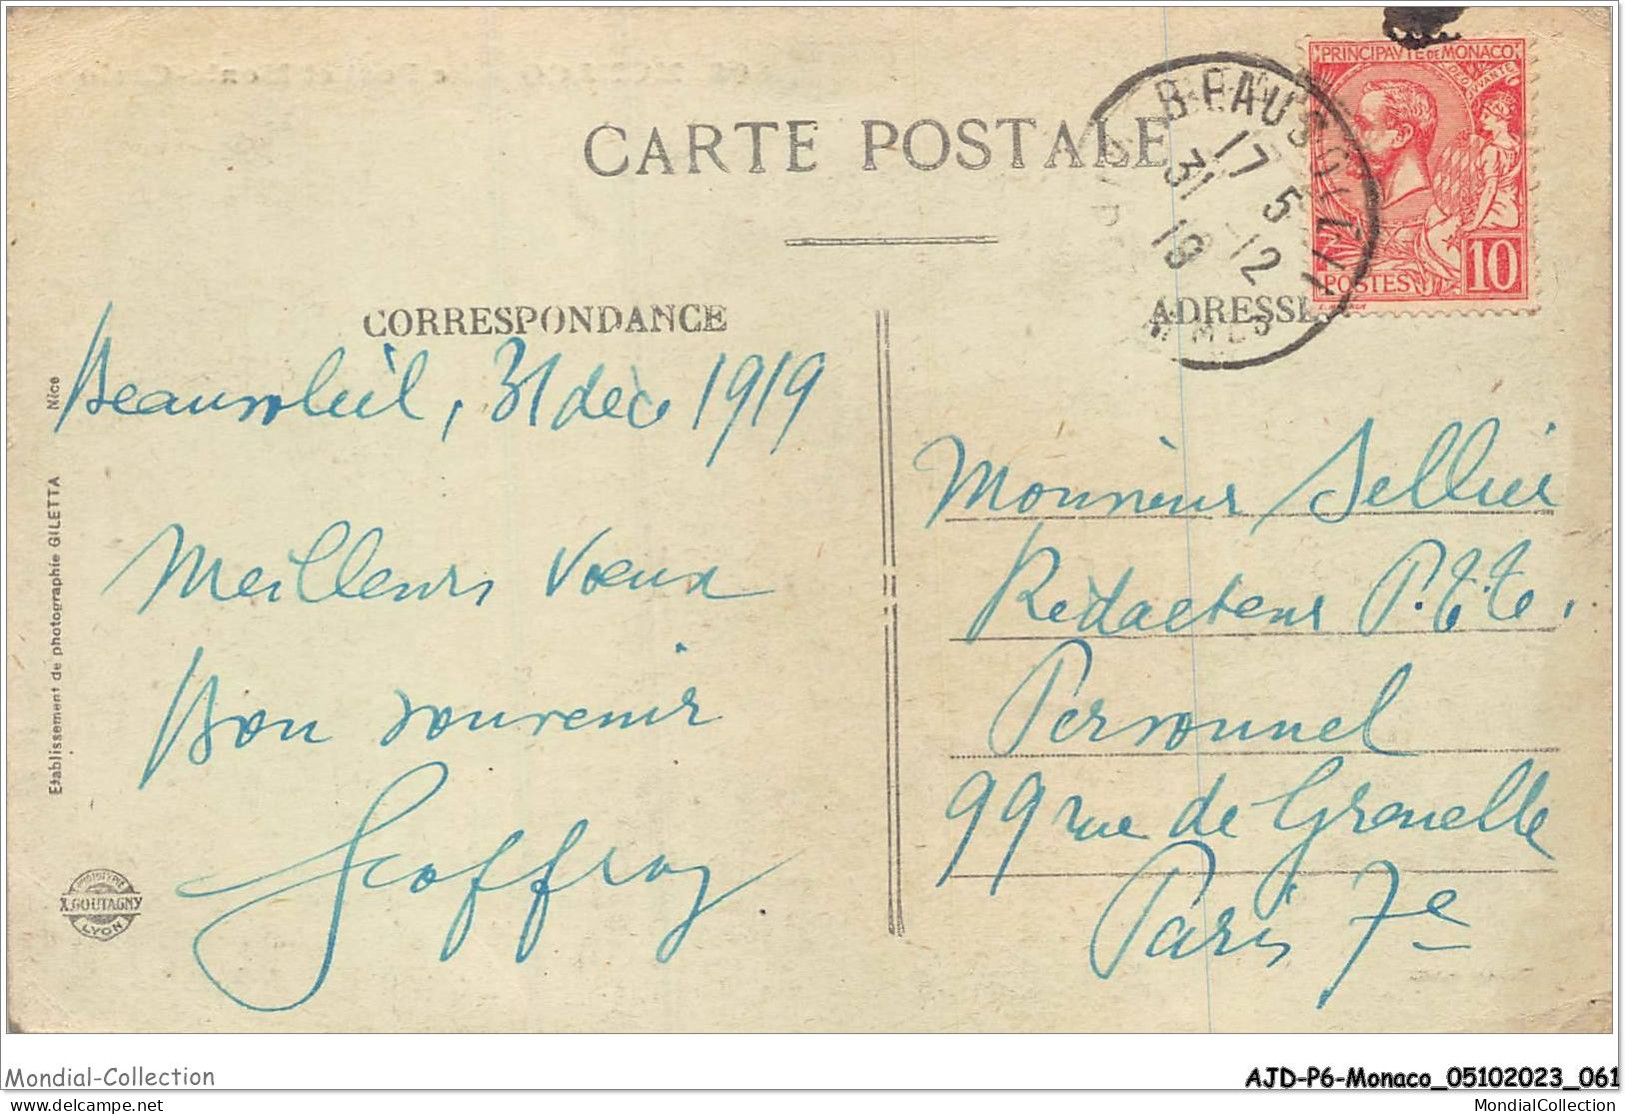 PRINCIPAVTÉ DE MONACO
DEO JUVANTE
POSTES
10
BEAUSOLEIL
17 5
31 -12
19
CARTE POSTALE
CORRESPONDANCE
ADRESSE
Beausoleil, 31 déc 1919
Meilleurs Voeux
Bon souvenir
Geoffroy
Monsieur Sellier
Rédacteur P.t.te.
Personnel
99 rue de Grenelle
Paris 7e
Etablissement de photographie GILETTA Nice
PHOTOTYPIE
X.GOUTAGNY
LYON
Mondial-Collection
AJD-P6-Monaco_05102023_061
the-coll-art.com
MondialCollection